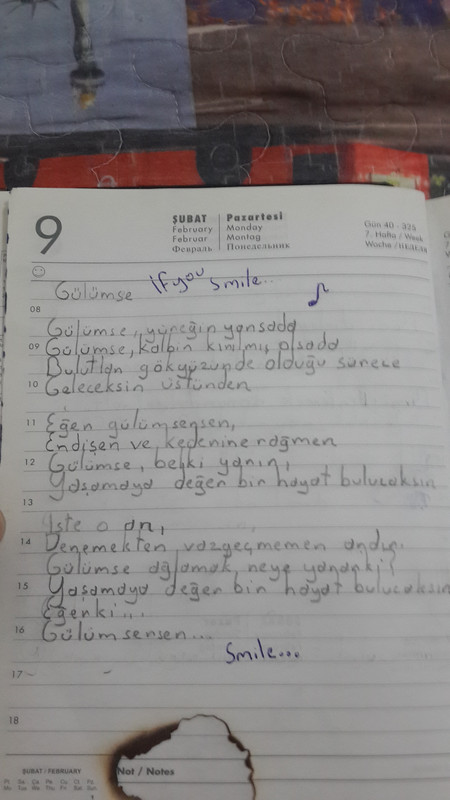 9
ŞUBAT Pazartesi
February Monday
Februar Montag
Февраль Понедельник
Gün 40 - 325
7. Hafta / Week
Woche /
Gülümse If you smile...
08
Gülümse, yüreğin yansada
09 Gülümse, kalbin kırılmış olsada
Bulutlar gökyüzünde olduğu sürece
10 Geleceksin üstünden
11 Eğer gülümsersen,
Endişen ve kederine rağmen
12 Gülümse, belki yarın,
Yaşamaya değer bir hayat bulucaksın
13
İşte o an,
14 Denemekten vazgeçmemen andır.
Gülümse ağlamak neye yararki?
15 Yaşamaya değer bir hayat bulucaksın
Eğerki...
16 Gülümsersen...
Smile...
17
18
ŞUBAT / FEBRUARY
Not / Notes